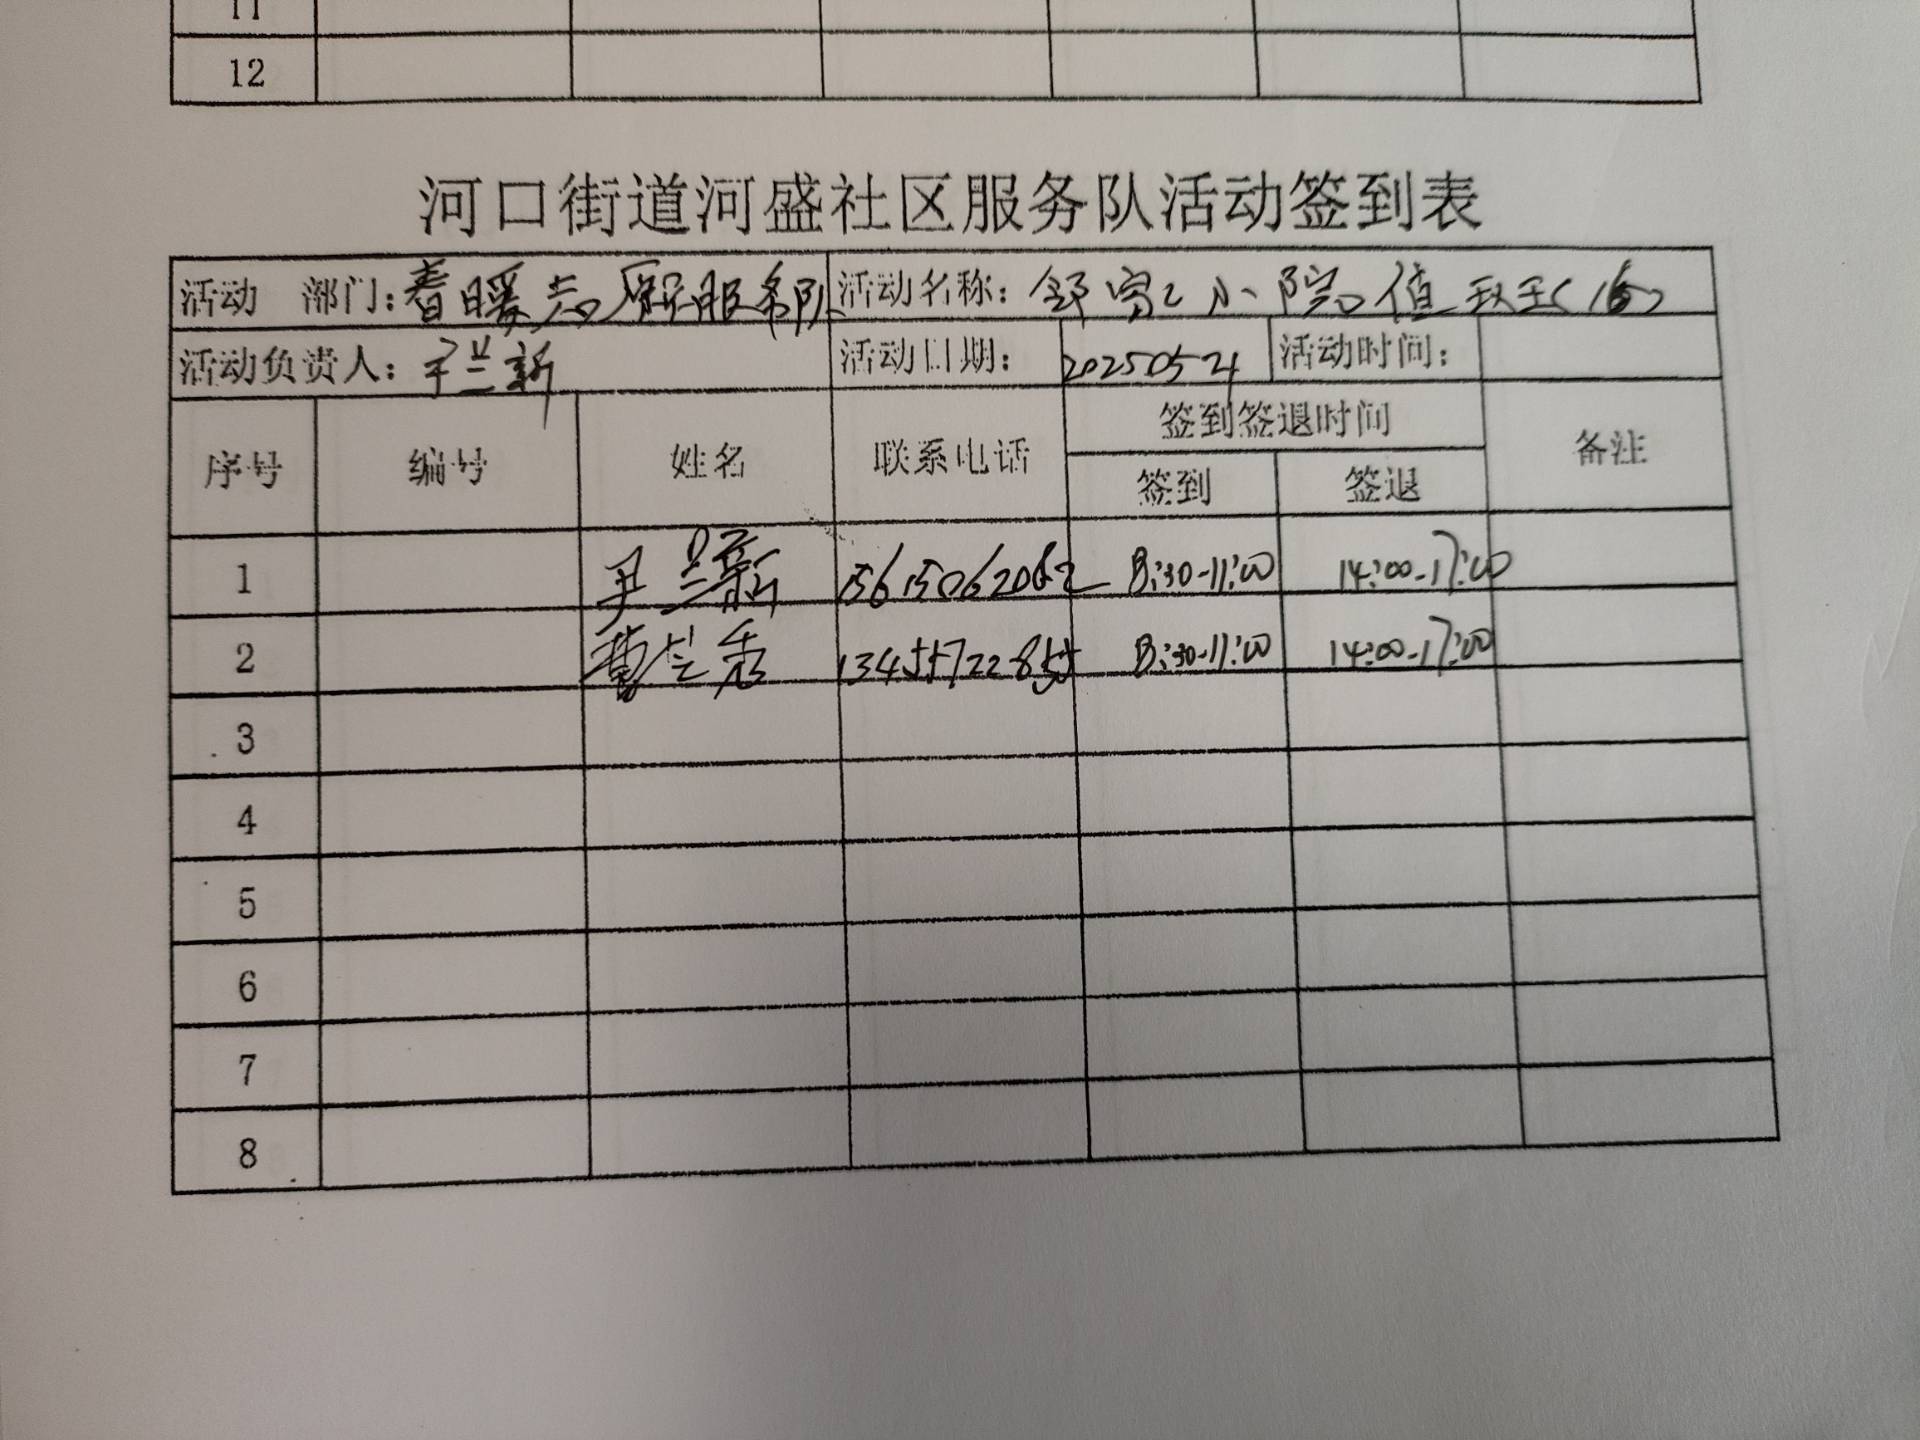 11
12
河口街道河盛社区服务队活动签到表
活动 部门：春暖志愿服务队 活动名称：小院值班
活动负责人：尹兰新 活动日期：20250524 活动时间：
序号 编号 姓名 联系电话 签到签退时间 备注
签到 签退
1 尹兰新 15615062062 8:30-11:00 14:00-17:00
2 曹兰秀 8:30-11:00 14:00-17:00
3
4
5
6
7
8